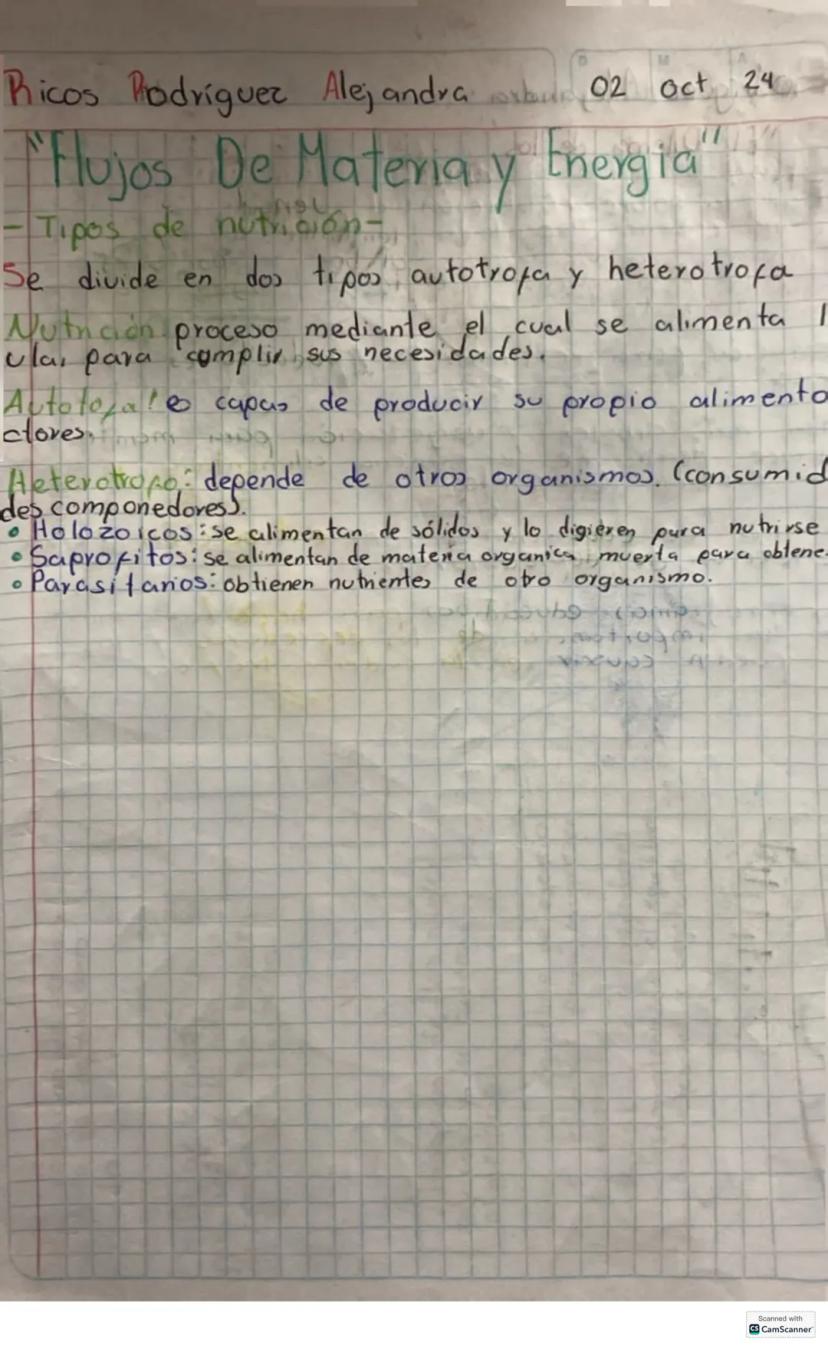 Ricos Rodríguez Alejandra 02 Oct 24
"Flujos De Materia y Energía"
- Tipos de nutrición -
Se divide en dos tipos autotrofa y heterotrofa
Nutrición proceso mediante el cual se alimenta l
ula, para cumplir sus necesidades.
capas de producir su propio alimento
ctores.
Heterotrofo: depende de otros organismos. (consumid
descomponedores).
• Holozoicos: se alimentan de sólidos y lo digieren para nutrirse
• Saprofitos: se alimentan de materia organica muerta para obtene
• Parasitarios: obtienen nutrientes de otro organismo.
Scanned with
CS CamScanner